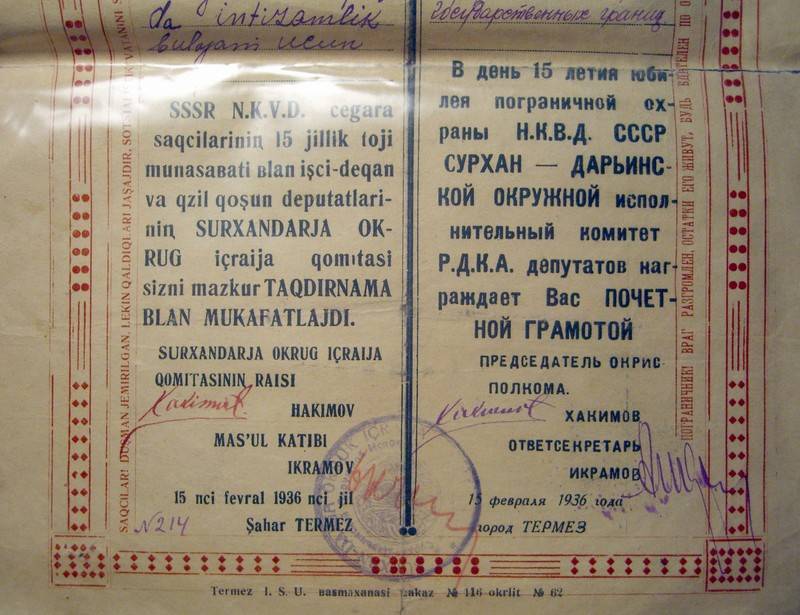 da intizamlik
bulgani ucun
SSSR N.K.V.D. cegara
saqcilarininꞑ 15 jillik toji
munasavati вlan işci-deqan
va qzil qoşun deputatlari-
niꞑ SURXANDARJA OK-
RUG içraija qomıtasi
sizni mazkur TAQDIRNAMA
BLAN MUKAFATLAJDI.
SURXANDARJA OKRUG IÇRAIJA
QOMITASININ RAISI
HAKIMOV
MAS'UL KATIBI
IKRAMOV
15 nci fevral 1936 nci jil
Şahar TERMEZ
№ 214
государственных границ
В день 15 летия юби-
лея пограничной ох-
раны Н.К.В.Д. СССР
СУРХАН — ДАРЬИНС-
КОЙ ОКРУЖНОЙ испол-
нительный комитет
Р.Д.К.А. депутатов наг-
раждает Вас ПОЧЕТ-
НОЙ ГРАМОТОЙ
ПРЕДСЕДАТЕЛЬ ОКРИС
ПОЛКОМА.
ХАКИМОВ
ОТВЕТСЕКРЕТАРЬ
ИКРАМОВ
15 февраля 1936 года
город ТЕРМЕЗ
SAQCILAR! DUŞMAN JEMIRILGAN, LEKIN QALDIQLARI JAŞAJDIR, SOTSIALISTIK VATANINI
ПОГРАНИЧНИК! ВРАГ РАЗГРОМЛЕН, ОСТАТКИ ЕГО ЖИВУТ, БУДЬ БДИТЕЛЕН ПО О
Termez I. S. U. вasmaxanasi zakaz № 116 okrlit № 62